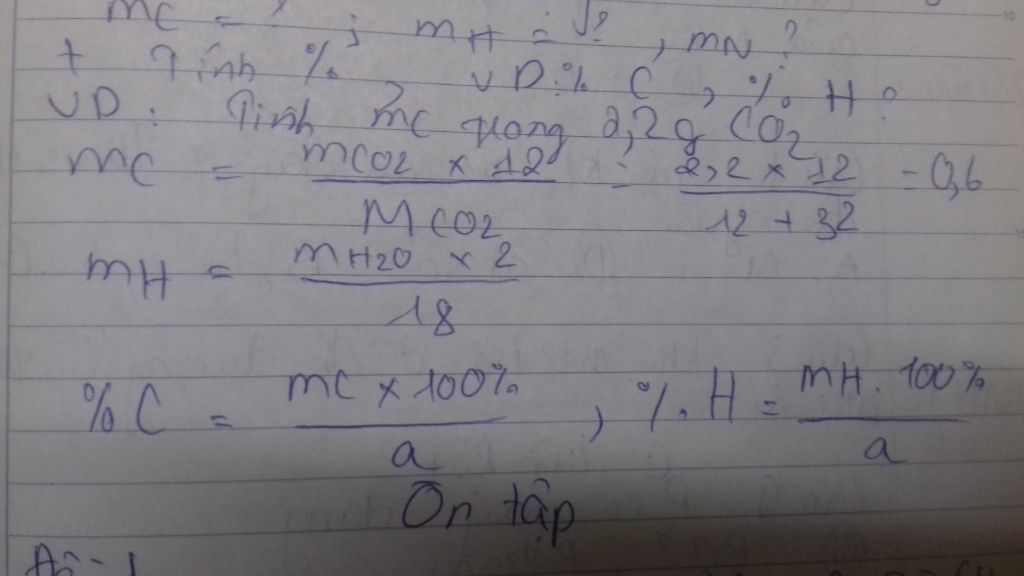 mC = ? ; mH = ? , mN ?
+ Tính % VD: % C , % H ?
VD : Tính mC trong 2,2g CO2
mC = mCO2 x 12 / MCO2 = 2,2 x 12 / 12 + 32 = 0,6
mH = mH2O x 2 / 18
%C = mC x 100% / a , %H = mH . 100% / a
Ôn tập